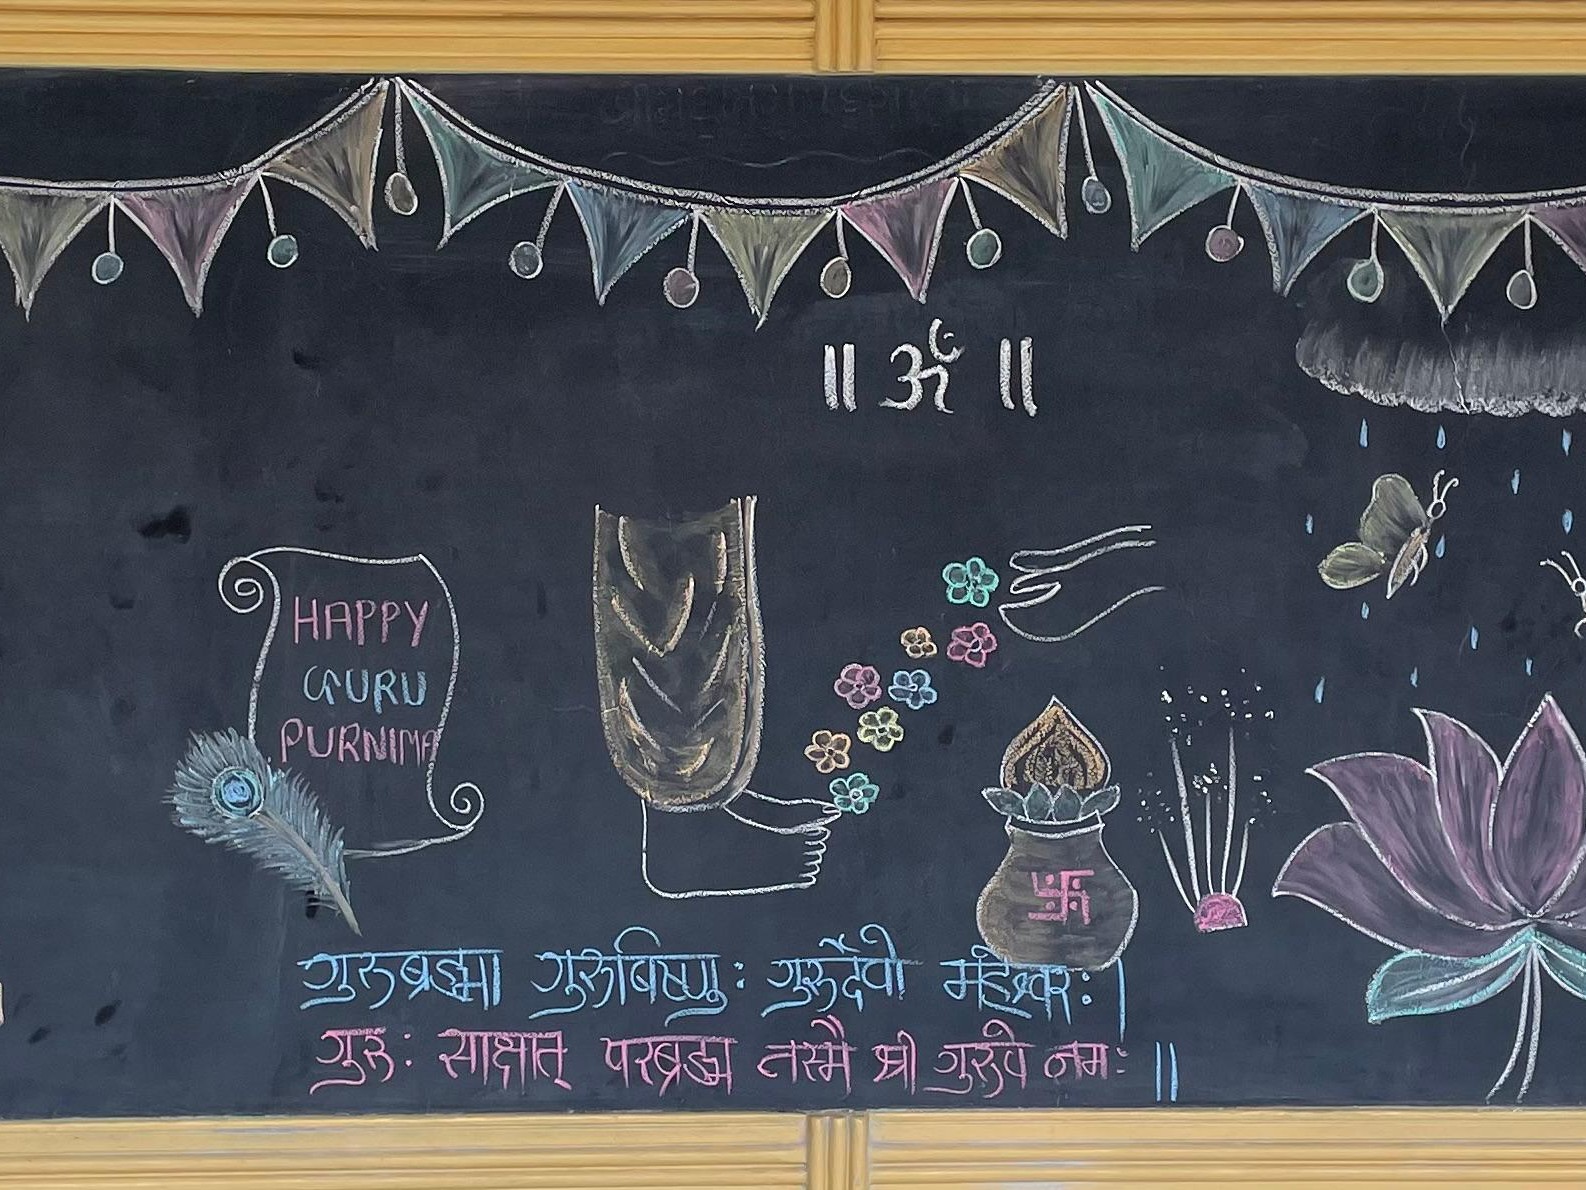 ॥ ॐ ॥
HAPPY
GURU
PURNIMA
गुरुब्रह्मा गुरुबिष्णुः गुरुर्देवो महेश्वरः।
गुरुः साक्षात् परब्रह्म तस्मै श्री गुरुवे नमः ॥